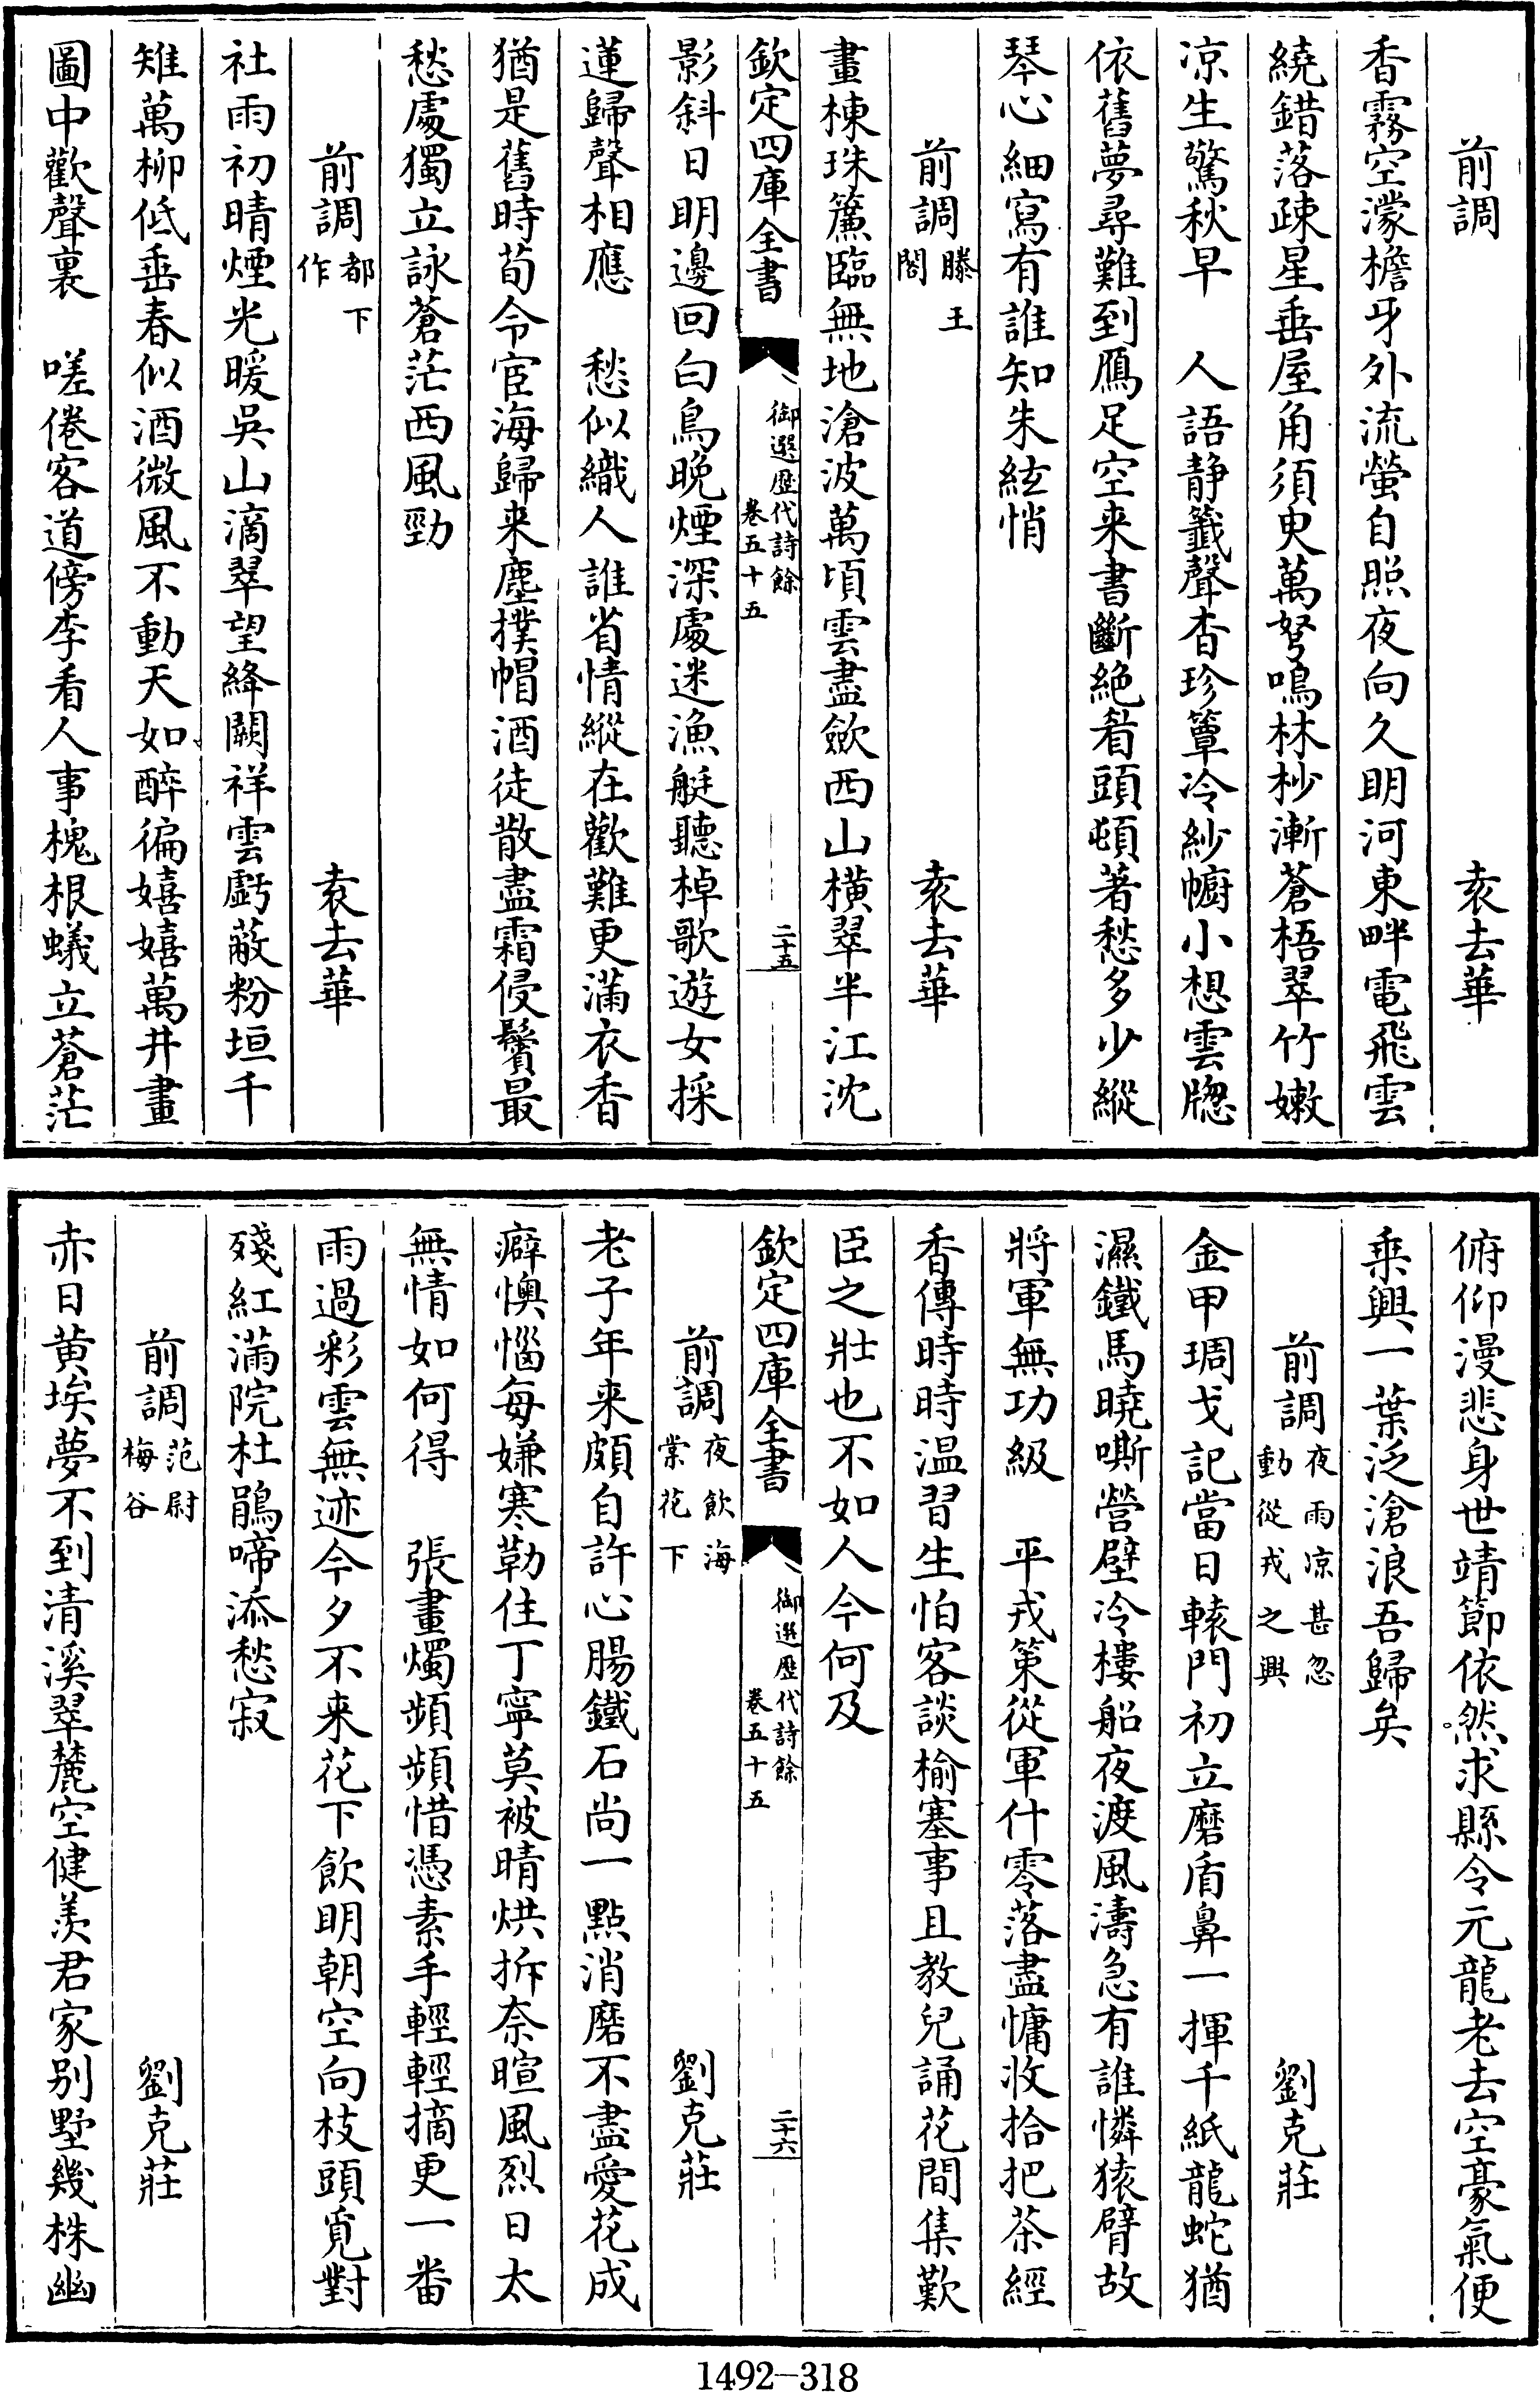 前調　袁去華
香霧空濛檐牙外流螢自照夜向久明河東畔電飛雲
繞錯落疎星垂屋角須臾萬弩鳴林杪漸蒼梧翠竹嫩
凉生驚秋早　人語静籤聲杳珍簟冷紗幮小想雲牕
依舊夢尋難到鴈足空来書斷絶㸔頭頓著愁多少縱
琴心細寫有誰知朱絃悄
前調滕王閣　袁去華
畫棟珠簾臨無地滄波萬頃雲盡歛西山橫翠半江沈
欽定四庫全書　御選歴代詩餘　卷五十五　二十五
影斜日明邊回白鳥晚煙深處迷漁艇聽棹歌遊女採
蓮歸聲相應　愁似織人誰省情縱在歡難更滿衣香
猶是舊時荀令宦海歸来塵撲帽酒徒散盡霜侵鬢最
愁處獨立詠蒼茫西風勁
前調都下作　袁去華
社雨初晴煙光暖吳山滴翠望絳闕祥雲虧蔽粉垣千
雉萬柳低垂春似酒微風不動天如醉徧嬉嬉萬井畫
圖中歡聲裏　嗟倦客道傍李看人事槐根蟻立蒼茫
俯仰漫悲身世靖節依然求縣令元龍老去空豪氣便
乗興一葉泛滄浪吾歸矣
前調夜雨凉甚忽動從戎之興　劉克莊
金甲琱戈記當日轅門初立磨盾鼻一揮千紙龍蛇猶
濕鐵馬曉嘶營壁冷樓船夜渡風濤急有誰憐猿臂故
將軍無功級　平戎策從軍什零落盡慵收拾把茶經
香傳時時温習生怕客談榆塞事且教兒誦花間集歎
臣之壯也不如人今何及
欽定四庫全書　御選歴代詩餘　卷五十五　二十六
前調夜飲海棠花下　劉克莊
老子年来頗自許心腸鐵石尚一點消磨不盡愛花成
癖懊惱每嫌寒勒住丁寧莫被晴烘拆奈暄風烈日太
無情如何得　張畫燭頻頻惜憑素手輕輕摘更一番
雨過彩雲無迹今夕不来花下飲明朝空向枝頭覓對
殘紅滿院杜鵑啼添愁寂
前調范尉梅谷　劉克莊
赤日黄埃夢不到清溪翠麓空健羡君家别墅幾株幽
1492—318